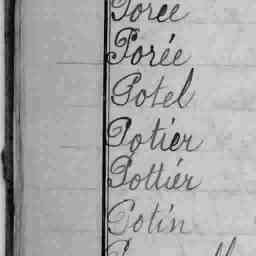 Porée
Porée
Potel
Potier
Pottiér
Potin